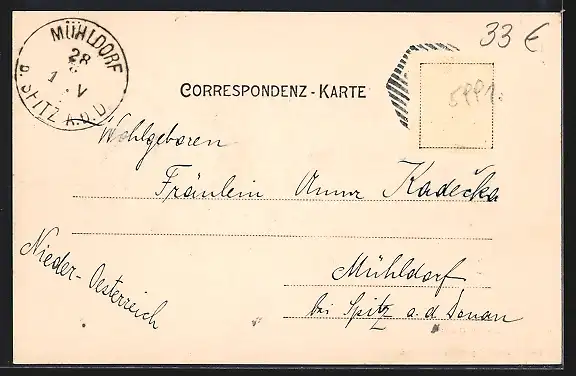 MÜHLDORF
28
1 V
b. SPITZ A.D.D.
33 €
CORRESPONDENZ-KARTE
5991.
Wohlgeboren
Fräulein Anna Kadečka
Nieder-Oesterreich
Mühldorf
bei Spitz a. d Donau